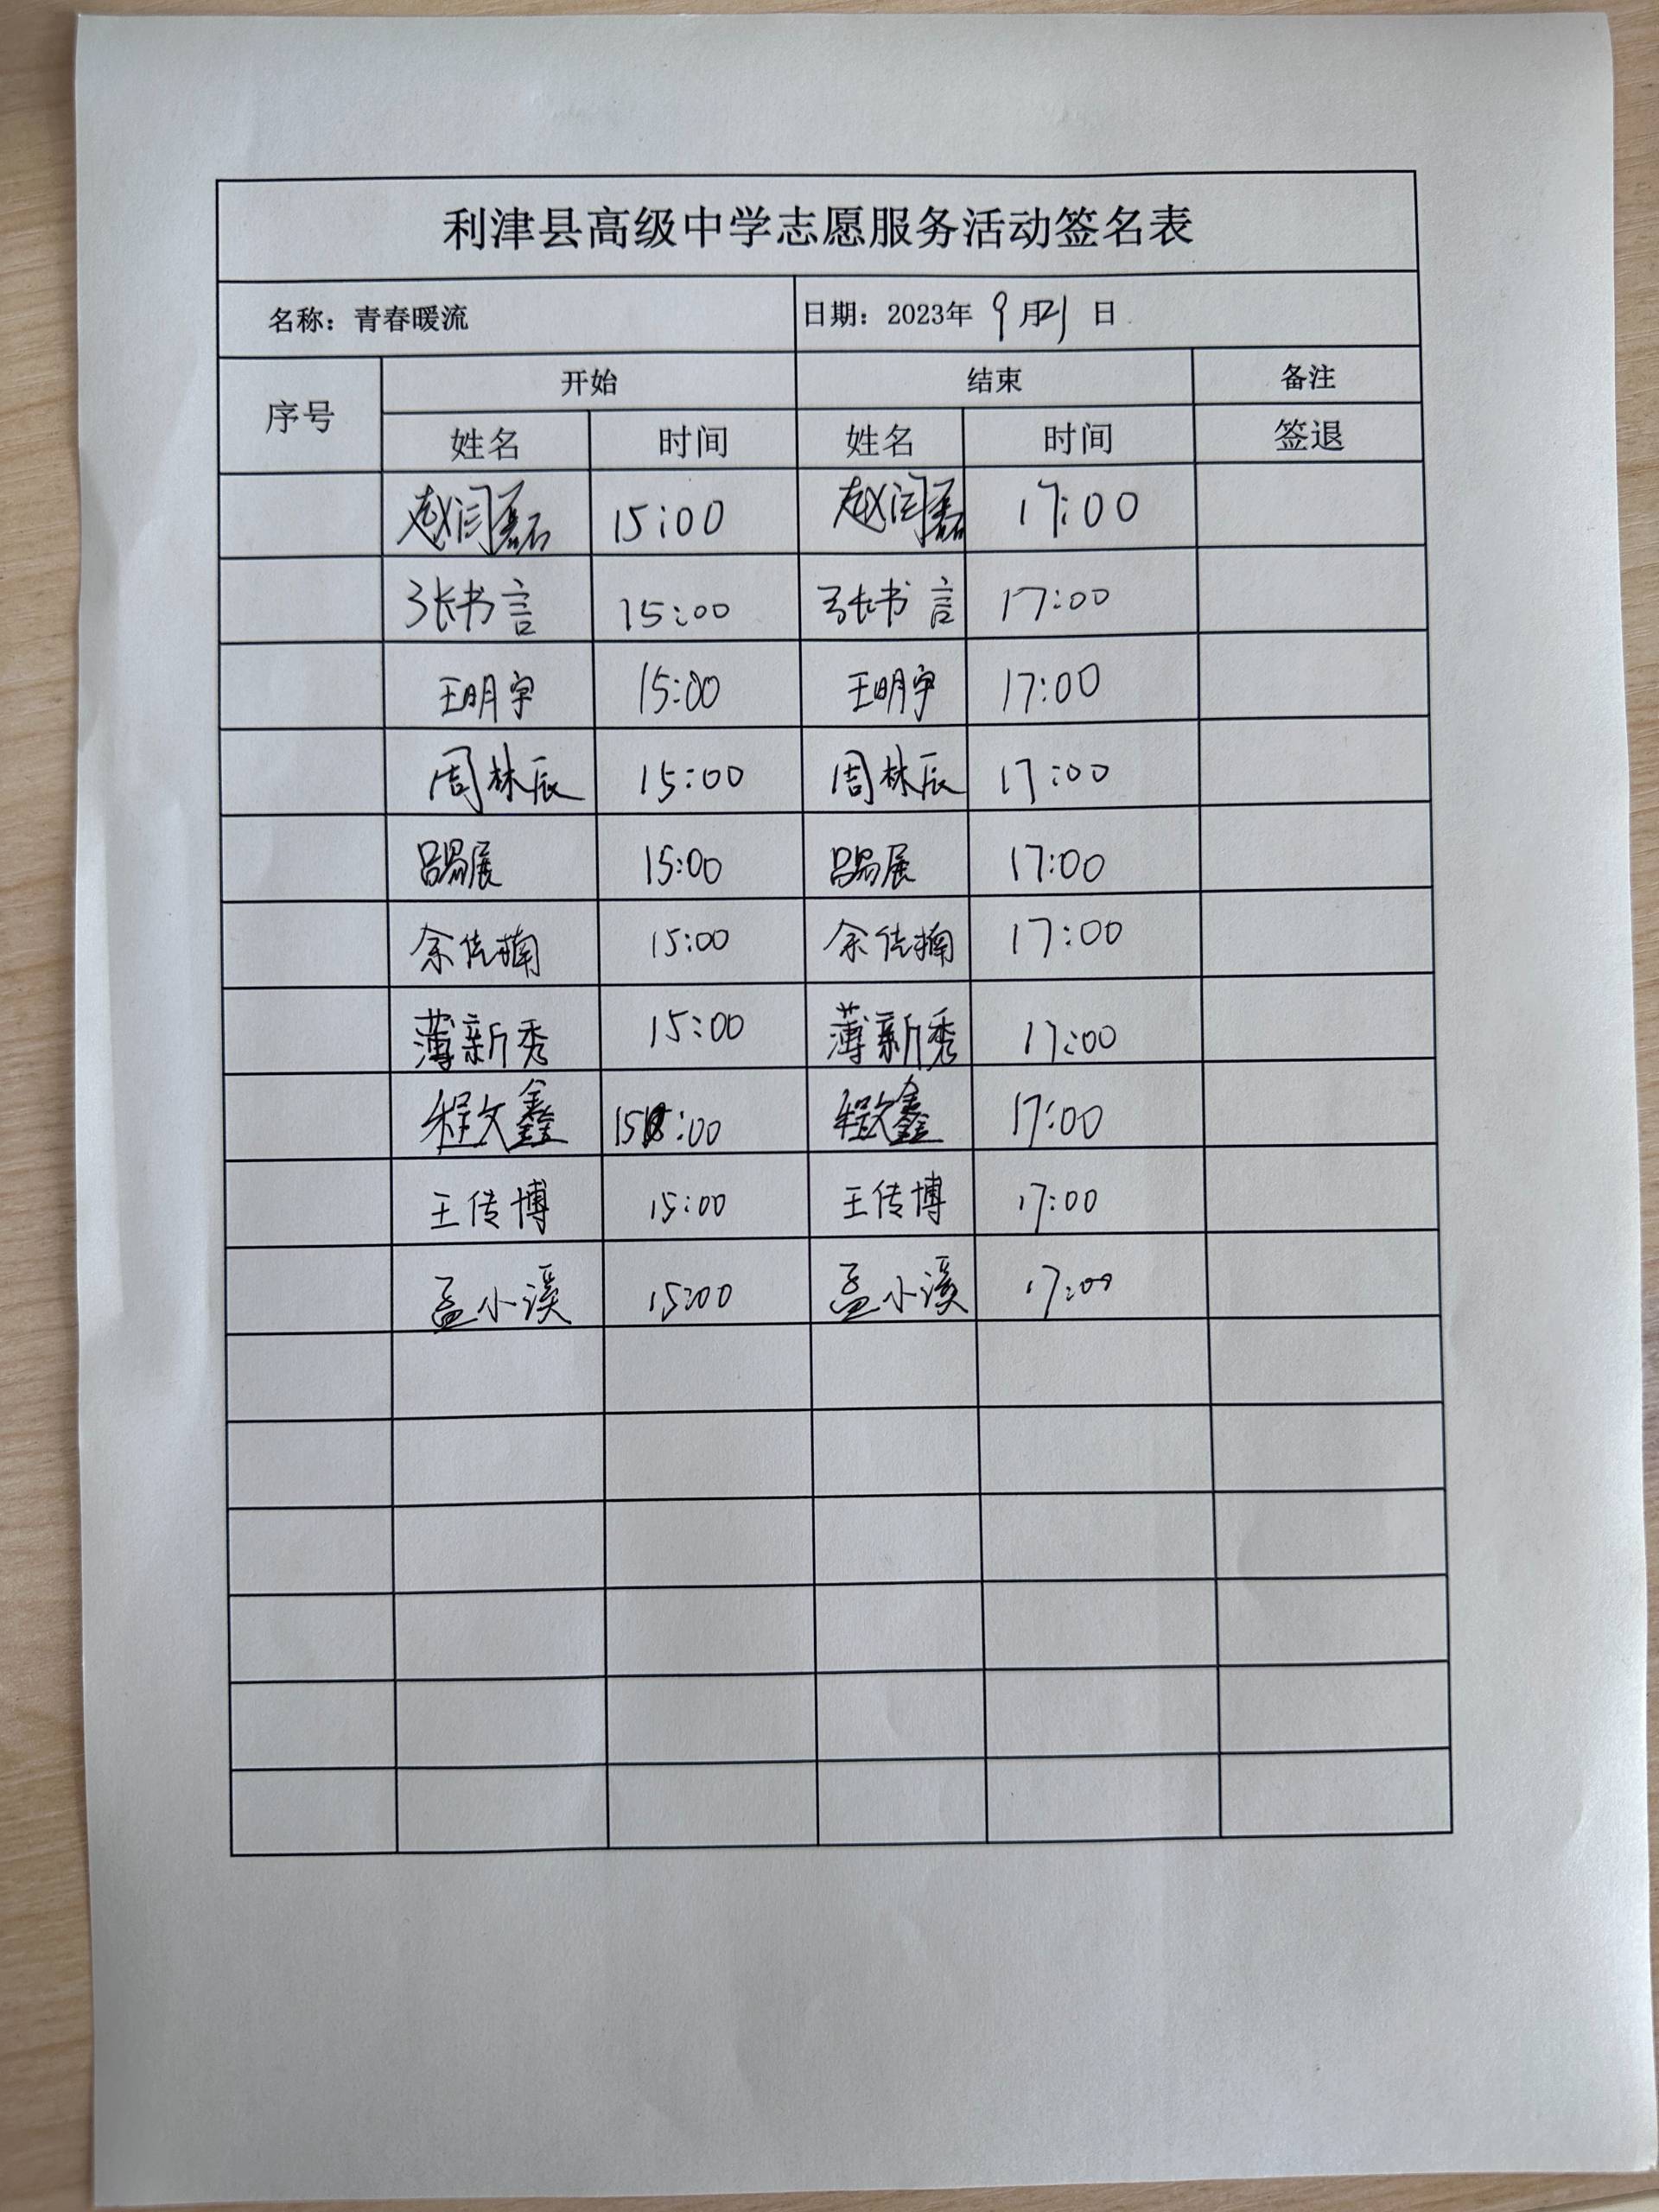 利津县高级中学志愿服务活动签名表
名称：青春暖流 日期：2023年 9月21日
序号 开始 结束 备注
姓名 时间 姓名 时间 签退
赵闫磊 15:00 赵闫磊 17:00
张书言 15:00 张书言 17:00
王明宇 15:00 王明宇 17:00
周林辰 15:00 周林辰 17:00
吕易展 15:00 吕易展 17:00
余传楠 15:00 余传楠 17:00
薄新秀 15:00 薄新秀 17:00
程文鑫 15:00 程文鑫 17:00
王传博 15:00 王传博 17:00
孟小溪 15:00 孟小溪 17:00